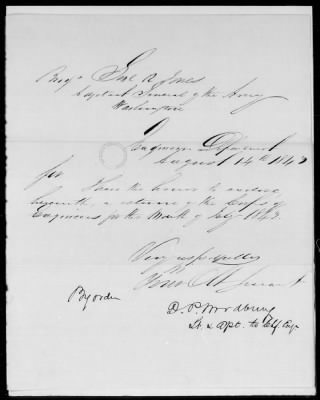 Brig. Genl R Jones
Adjutant General of the Army
Washington
Engineer Department
August 14th 184
Sir
I have the honor to enclose
herewith, a return of the Corps of
Engineers for the Month of July 184
Very respectfully
Your
By order
D. P. Woodbury
Lt. & Asst. to Chf. Engr